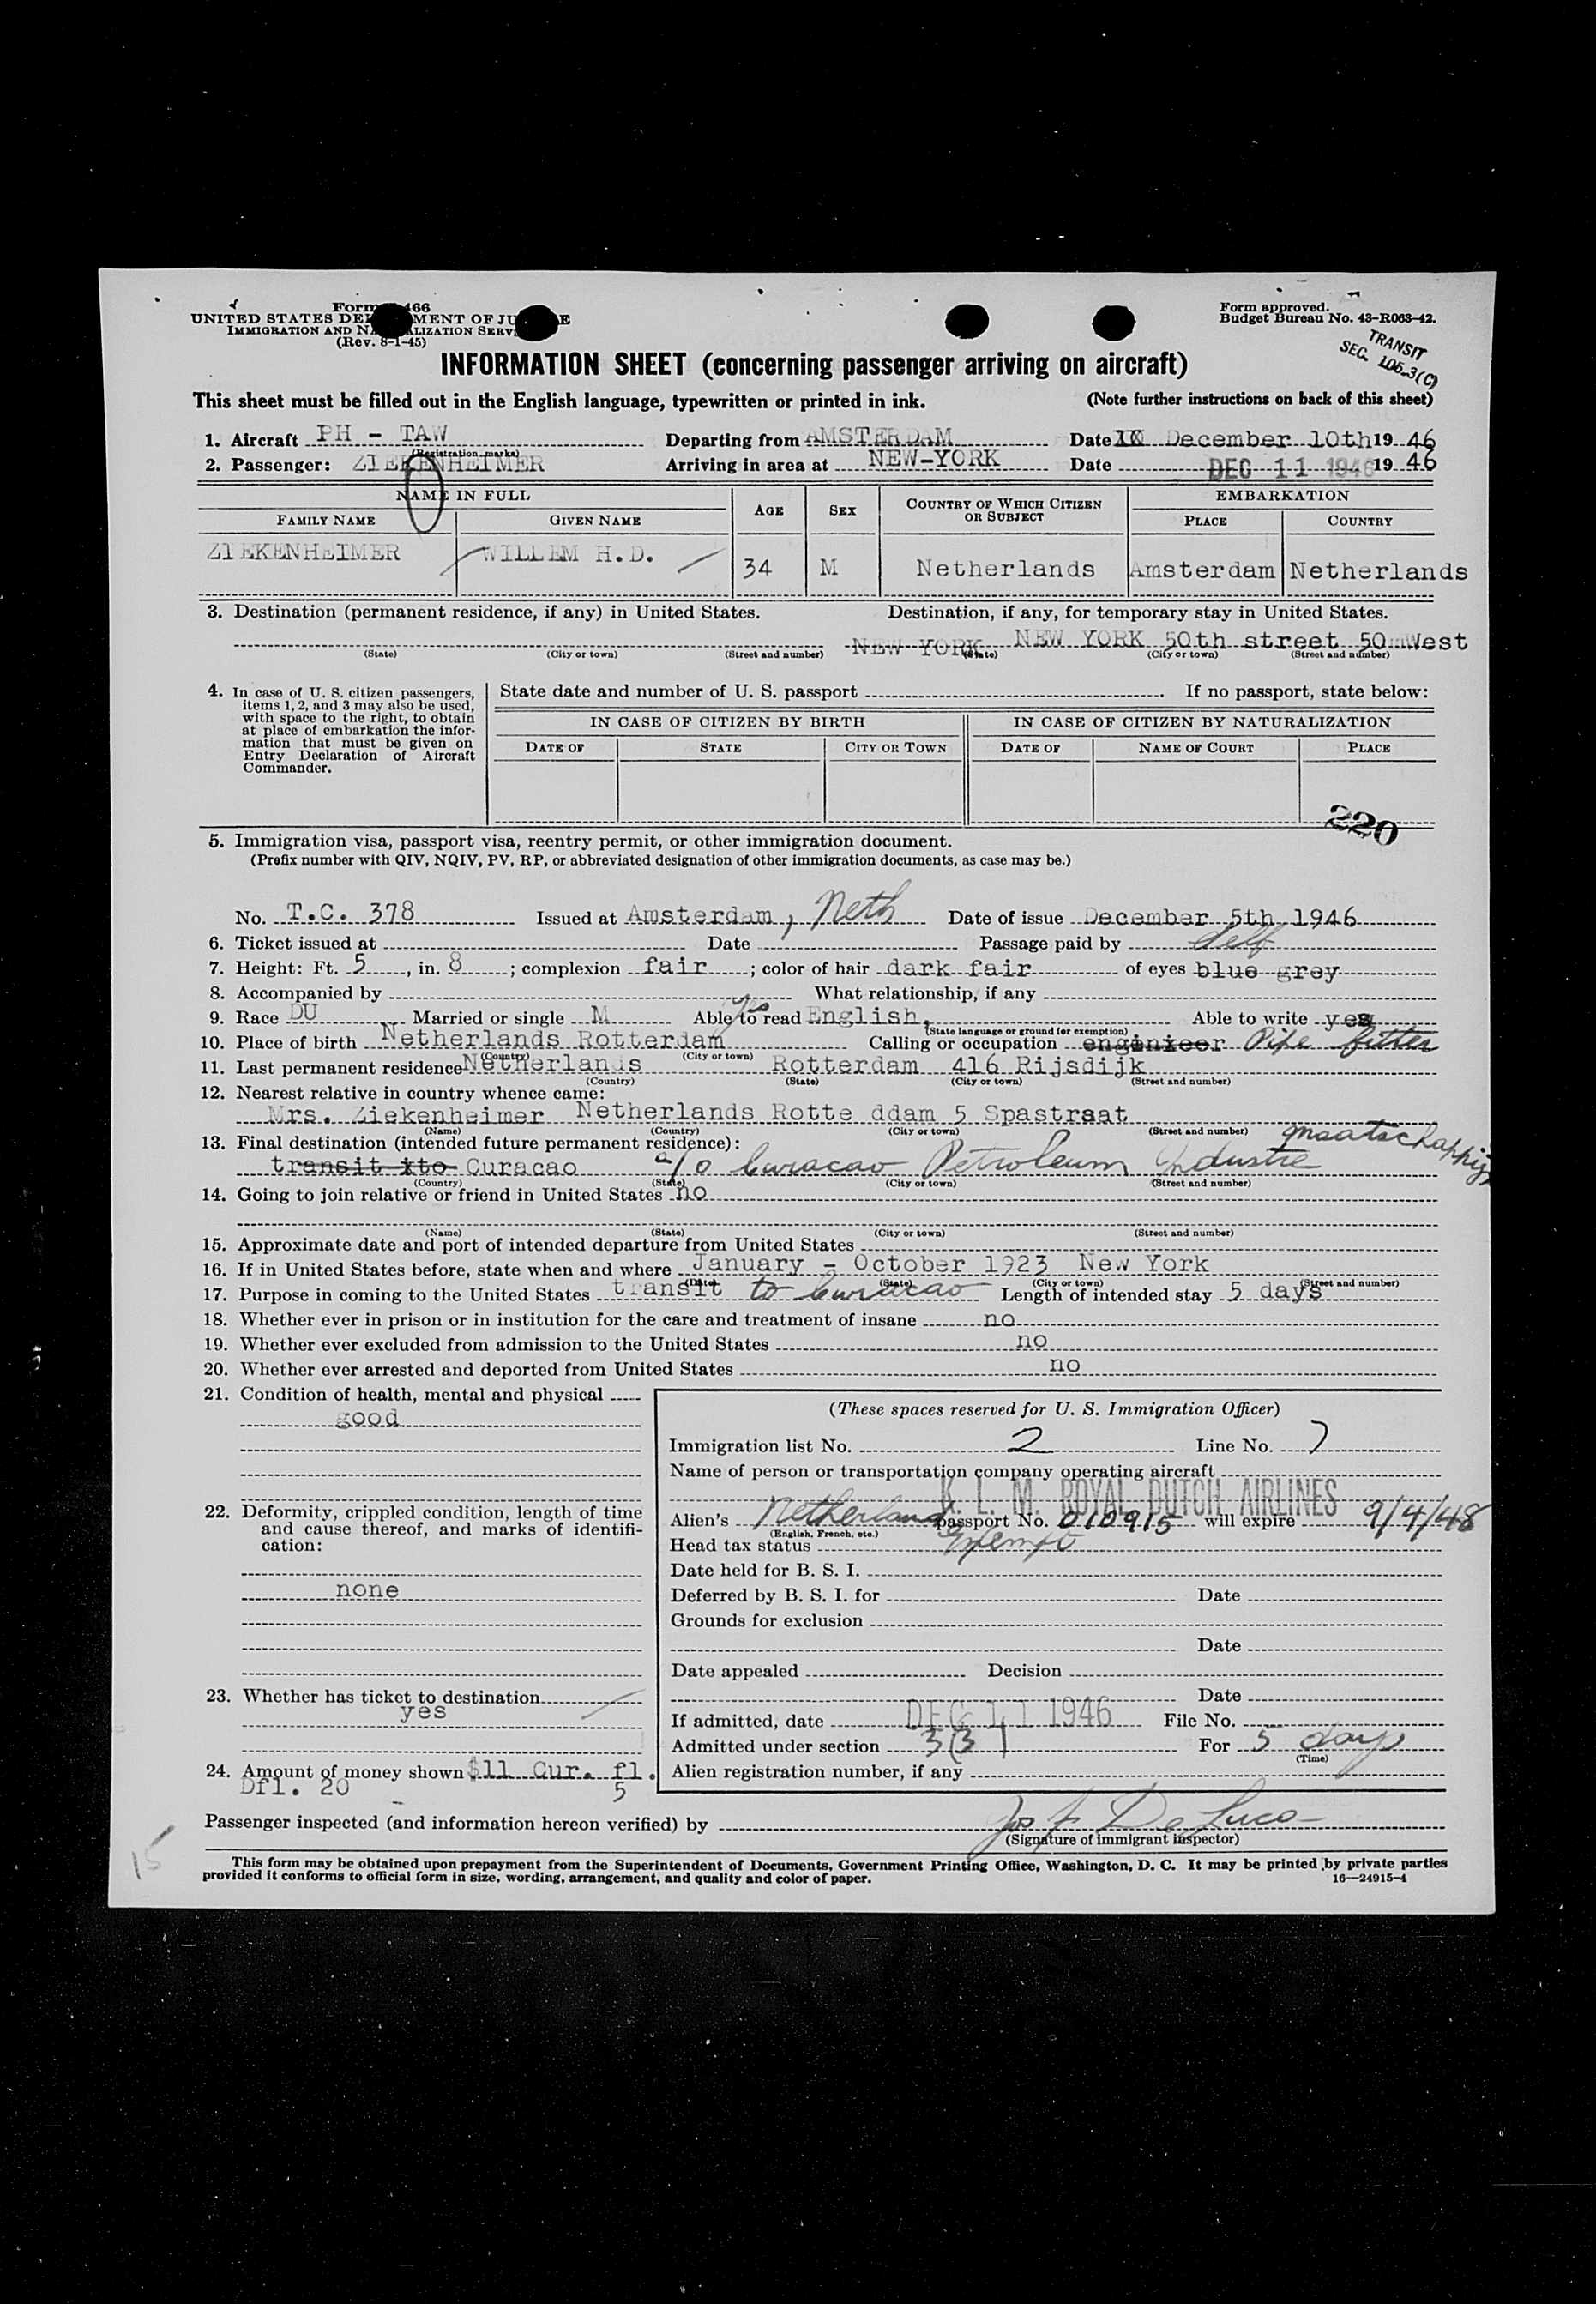 Form 466
UNITED STATES DE MENT OF JU E
IMMIGRATION AND NA LIZATION SERV
(Rev. 8-1-45)
Form approved.
Budget Bureau No. 43-R063-42.
TRANSIT
SEC. 106.3(C)
INFORMATION SHEET (concerning passenger arriving on aircraft)
This sheet must be filled out in the English language, typewritten or printed in ink. (Note further instructions on back of this sheet)
1. Aircraft PH - TAW Departing from AMSTERDAM Date December 10th 19 46
(Registration marks)
2. Passenger: ZIEKENHEIMER Arriving in area at NEW-YORK Date DEC 11 1946 19 46
NAME IN FULL AGE SEX COUNTRY OF WHICH CITIZEN OR SUBJECT EMBARKATION
FAMILY NAME GIVEN NAME PLACE COUNTRY
ZIEKENHEIMER WILLEM H.D. 34 M Netherlands Amsterdam Netherlands
3. Destination (permanent residence, if any) in United States. Destination, if any, for temporary stay in United States.
NEW YORK NEW YORK 50th street 50 West
(State) (City or town) (Street and number) (State) (City or town) (Street and number)
4. In case of U. S. citizen passengers, items 1, 2, and 3 may also be used, with space to the right, to obtain at place of embarkation the information that must be given on Entry Declaration of Aircraft Commander.
State date and number of U. S. passport If no passport, state below:
IN CASE OF CITIZEN BY BIRTH IN CASE OF CITIZEN BY NATURALIZATION
DATE OF STATE CITY OR TOWN DATE OF NAME OF COURT PLACE
220
5. Immigration visa, passport visa, reentry permit, or other immigration document.
(Prefix number with QIV, NQIV, PV, RP, or abbreviated designation of other immigration documents, as case may be.)
No. T.C. 378 Issued at Amsterdam, Neth Date of issue December 5th 1946
6. Ticket issued at Date Passage paid by Self
7. Height: Ft. 5, in. 8; complexion fair; color of hair dark fair of eyes blue grey
8. Accompanied by What relationship, if any
9. Race DU Married or single M Able to read yes English, Able to write yes
(State language or ground for exemption)
10. Place of birth Netherlands Rotterdam Calling or occupation enginieer Pipe fitter
(Country) (City or town)
11. Last permanent residence Netherlands Rotterdam 416 Rijsdijk
(Country) (State) (City or town) (Street and number)
12. Nearest relative in country whence came:
Mrs. Ziekenheimer Netherlands Rotte ddam 5 Spastraat
(Name) (Country) (City or town) (Street and number)
13. Final destination (intended future permanent residence):
transit to Curacao c/o Curacao Petroleum Industrie maatschappij
(Country) (State) (City or town) (Street and number)
14. Going to join relative or friend in United States no
(Name) (State) (City or town) (Street and number)
15. Approximate date and port of intended departure from United States
16. If in United States before, state when and where January - October 1923 New York
(Date) (State) (City or town) (Street and number)
17. Purpose in coming to the United States transit to Curacao Length of intended stay 5 days
18. Whether ever in prison or in institution for the care and treatment of insane no
19. Whether ever excluded from admission to the United States no
20. Whether ever arrested and deported from United States no
21. Condition of health, mental and physical
good
22. Deformity, crippled condition, length of time and cause thereof, and marks of identification:
none
23. Whether has ticket to destination
yes
24. Amount of money shown $11 Cur. fl. 5
Dfl. 20
(These spaces reserved for U. S. Immigration Officer)
Immigration list No. 2 Line No. 7
Name of person or transportation company operating aircraft
K. L. M. ROYAL DUTCH AIRLINES
Alien's Netherland passport No. 010915 will expire 9/4/48
(English, French, etc.)
Head tax status Exempt
Date held for B. S. I.
Deferred by B. S. I. for Date
Grounds for exclusion
Date
Date appealed Decision
Date
If admitted, date DEC 11 1946 File No.
Admitted under section 3(3) For 5 days
(Time)
Alien registration number, if any
Passenger inspected (and information hereon verified) by Jos F De Luca
(Signature of immigrant inspector)
15
This form may be obtained upon prepayment from the Superintendent of Documents, Government Printing Office, Washington, D. C. It may be printed by private parties
provided it conforms to official form in size, wording, arrangement, and quality and color of paper. 16—24915-4